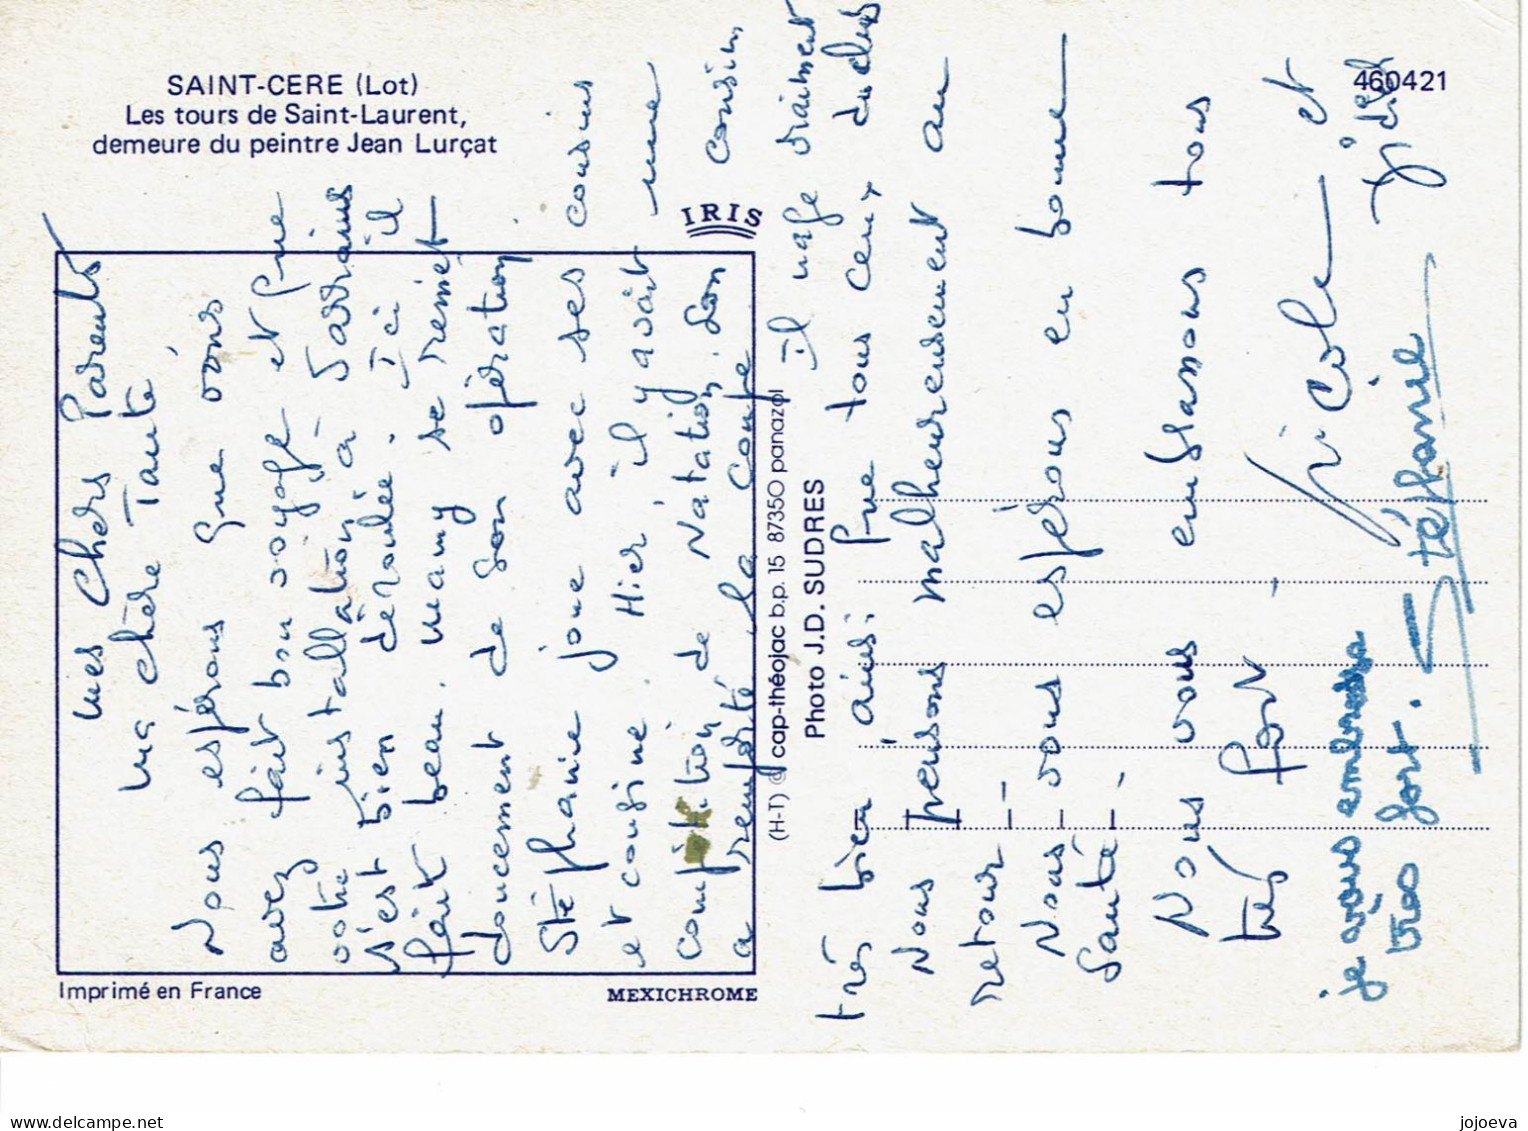 SAINT-CERE (Lot)
Les tours de Saint-Laurent,
demeure du peintre Jean Lurçat
460421
IRIS
Imprimé en France
MEXICHROME
(H-T) © cap-théojac b.p. 15 87350 panazol
Photo J.D. SUDRES
mes Chers Parents
ma chère Tante
Nous espérons que vous
avez fait bon voyage et que
votre installation à Sarrains
s'est bien déroulée. Ici il
fait beau. mamy se remet
doucement de son opération.
Stéphanie joue avec ses cousins
et cousine. Hier il y avait une
compétition de Natation. Son cousin
a remporté la coupe. Il nage vraiment
très bien ainsi que tous ceux du club
Nous pensons malheureusement au
retour -
Nous vous espérons en bonne
Santé -
Nous vous embrassons tous
très fort -
Nicole et
je vous embrasse
très fort. Stéphanie
jojoeva
www.delcampe.net